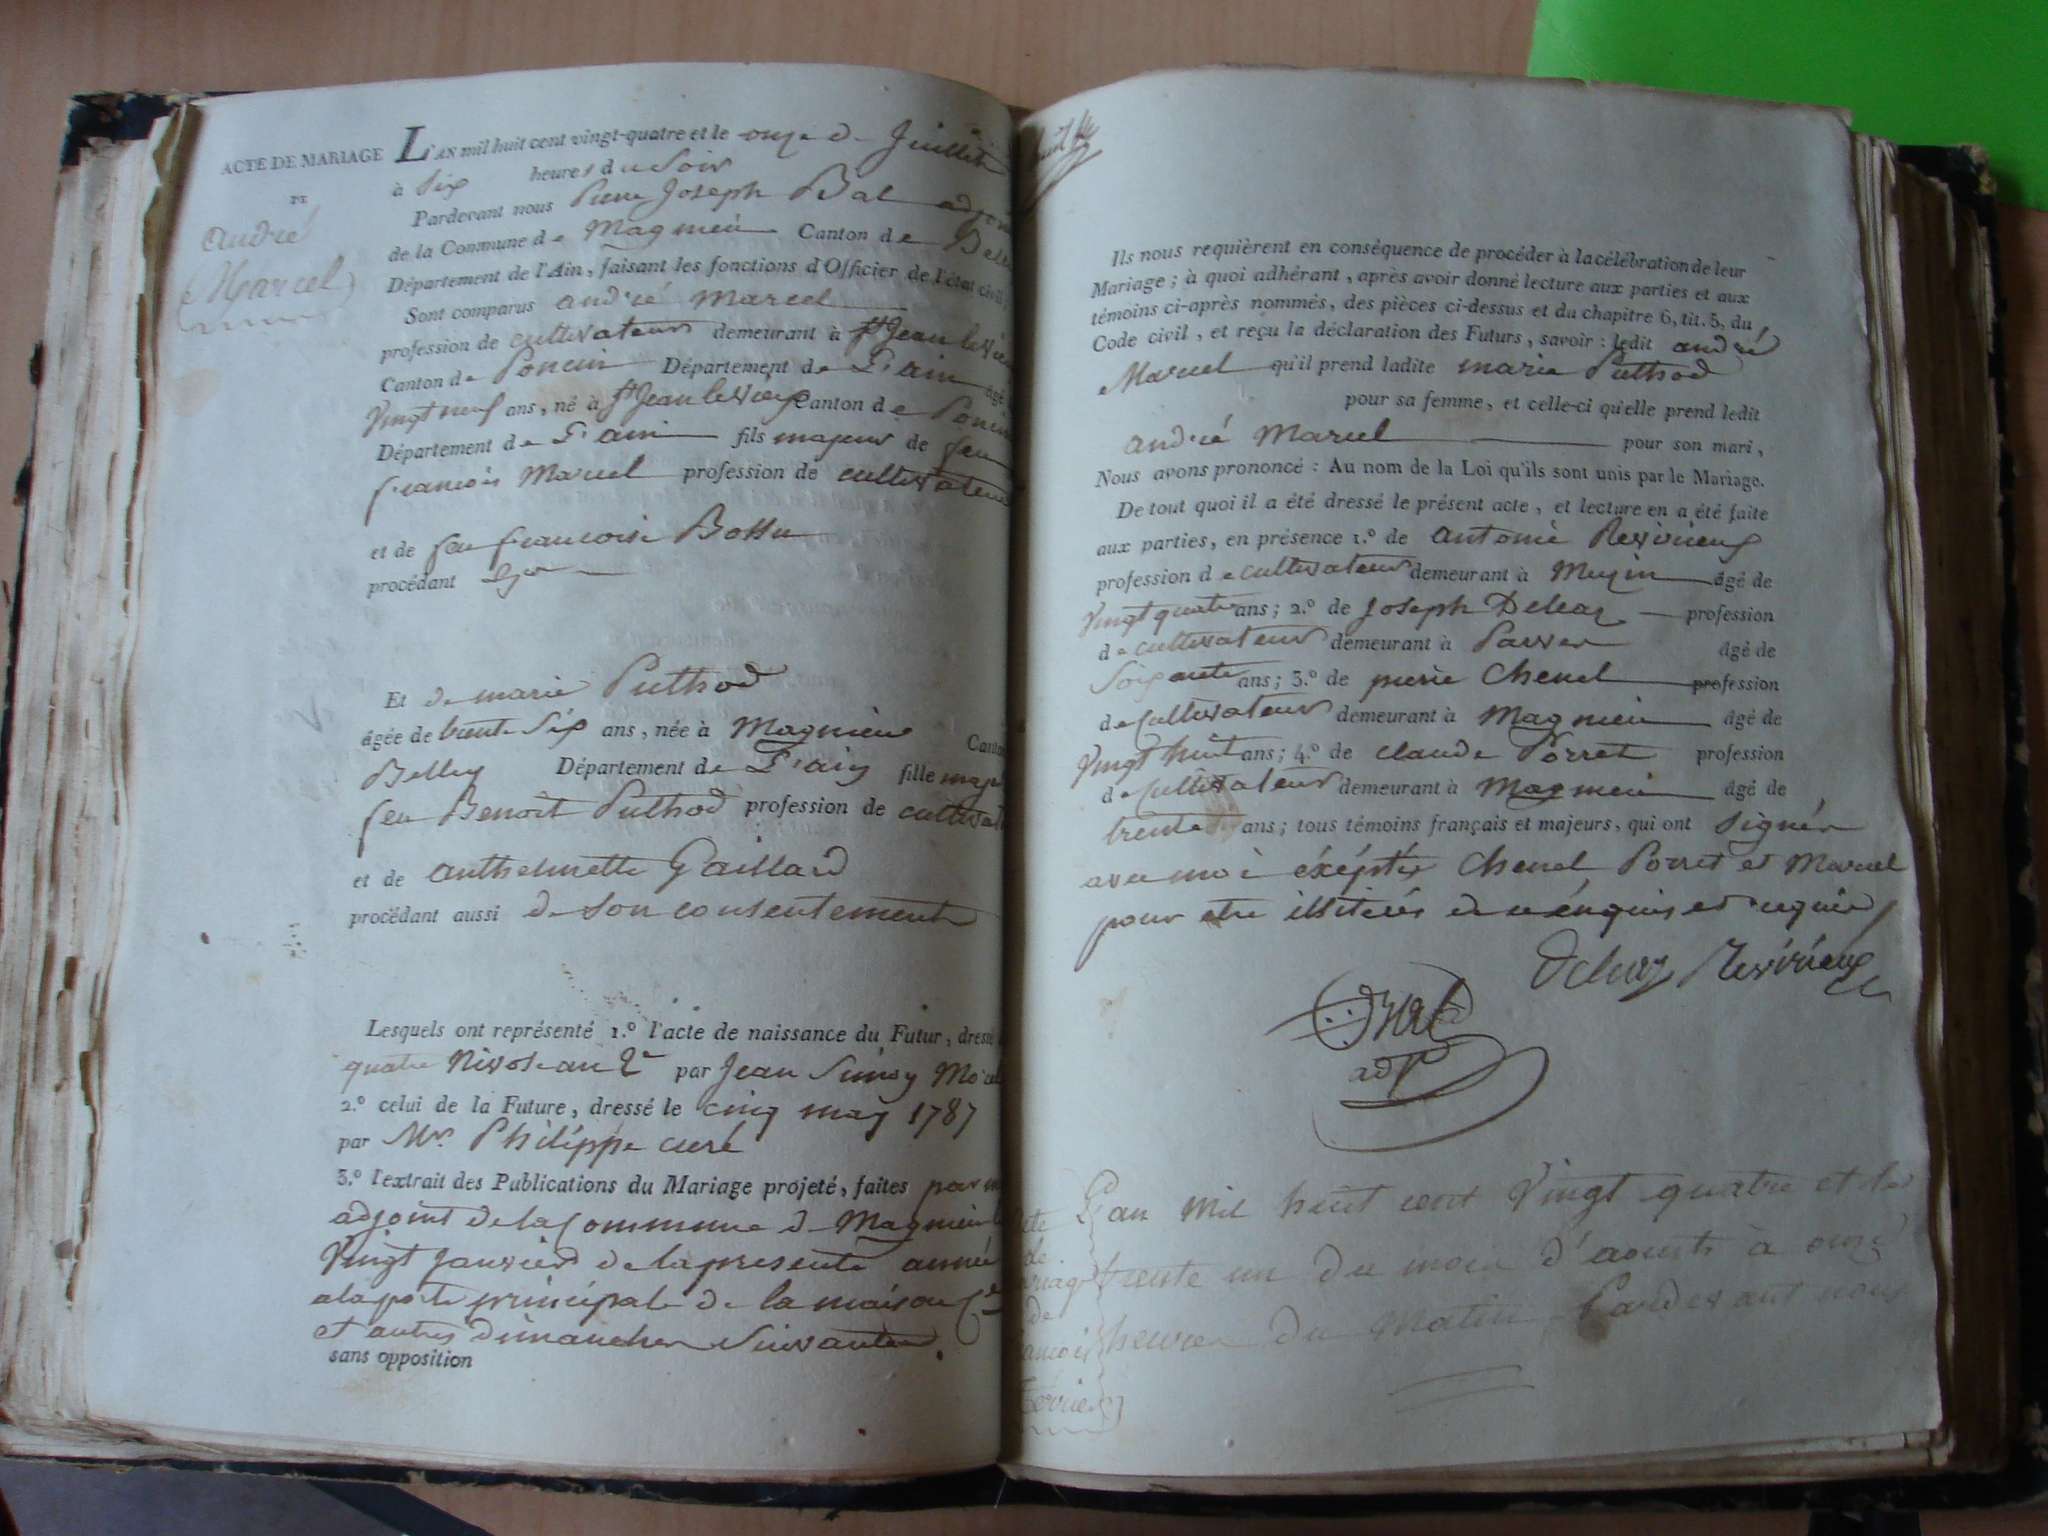 ACTE DE MARIAGE
DE
André
Marcel
L'AN mil huit cent vingt-quatre et le onze de Juillet
à Six heures du Soir
Pardevant nous Pierre Joseph Bal adjoint
de la Commune de Magnieu Canton de Belley
Département de l'Ain, faisant les fonctions d'Officier de l'état civil,
Sont comparus andré Marcel
profession de cultivateur demeurant à St Jean le Vieux
Canton de Poncin Département de L'ain âgé
Vingt neuf ans, né à St Jean le Vieux Canton de Poncin
Département de L'ain fils majeur de feu
françois Marcel profession de cultivateur
et de feu françoise Bossu
procédant
Et de marie Puthod
âgée de trente Six ans, née à Magnieu Canton
Belley Département de L'ain fille maje
feu Benoit Puthod profession de cultivat
et de anthelmette Gaillard
procédant aussi de son consentement
Lesquels ont représenté 1.º l'acte de naissance du Futur, dressé
quatre Nivose an 2e par Jean
2.º celui de la Future, dressé le cinq may 1787
par Mr. Philippe curé
3.º l'extrait des Publications du Mariage projeté, faites par
adjoint de la Commune de Magnieu le
Vingt Janvier de la presente année
a la porte principale de la maison Ce
et autres dimanches Suivantes.
sans opposition
Ils nous requièrent en conséquence de procéder à la célébration de leur
Mariage; à quoi adhérant, après avoir donné lecture aux parties et aux
témoins ci-après nommés, des pièces ci-dessus et du chapitre 6, tit. 5, du
Code civil, et reçu la déclaration des Futurs, savoir: ledit andré
Marcel qu'il prend ladite marie Puthod
pour sa femme, et celle-ci qu'elle prend ledit
andré Marcel pour son mari,
Nous avons prononcé: Au nom de la Loi qu'ils sont unis par le Mariage.
De tout quoi il a été dressé le présent acte, et lecture en a été faite
aux parties, en présence 1.º de antoine Revirieux
profession de cultivateur demeurant à Muzin âgé de
Vingt quatre ans; 2.º de Joseph Delear profession
de cultivateur demeurant à Parves âgé de
Soixante ans; 3.º de pierre Chenel profession
de Cultivateur demeurant à Magnieu âgé de
Vingt huit ans; 4.º de claude Porret profession
de Cultivateur demeurant à Magnieu âgé de
trente ans; tous témoins français et majeurs, qui ont Signés
avec moi éxéptés Chenel Porret et Marcel
pour etre illiterés de ce énquis et requis
Revirieux
adjt
acte
de
mariage
de
françois
Ferrier
L'an Mil huit cent Vingt quatre et le
trente un du mois d'aoust à onze
heures du Matin Pardevant nous